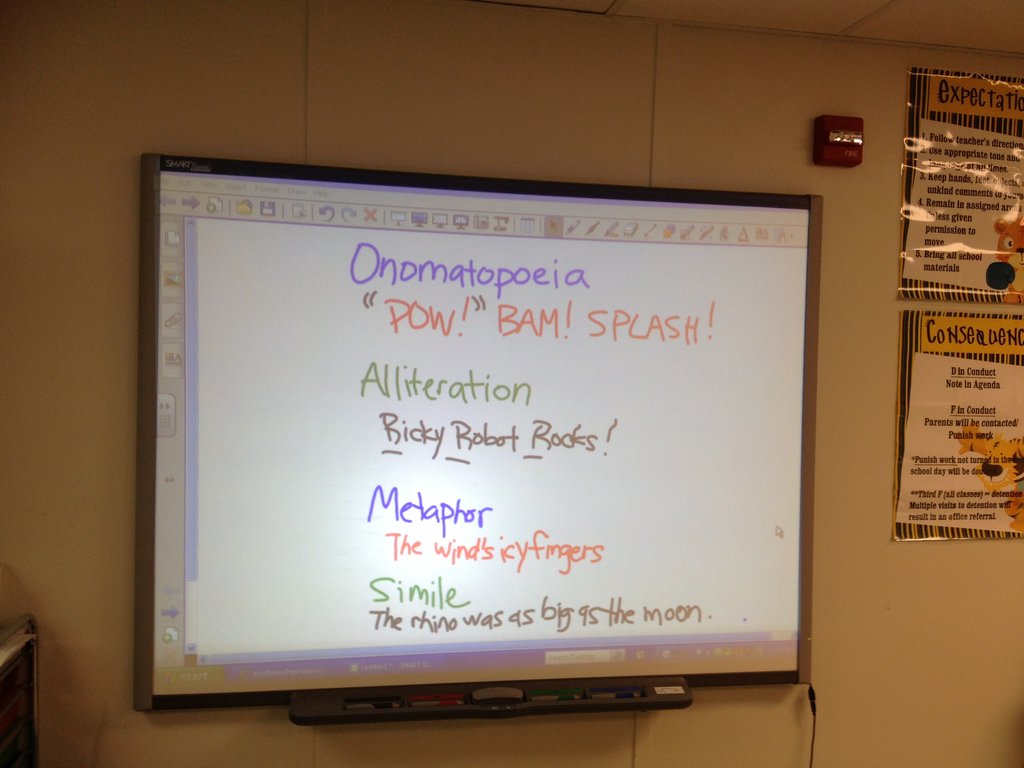 SMART Board
Edit View Insert Format Draw Help
Onomatopoeia
"POW!" BAM! SPLASH!
Alliteration
Ricky Robot Rocks!
Metaphor
The wind's icy fingers
Simile
The rhino was as big as the moon.
start
Search Desktop
FIRE
Expectatio
1. Follow teacher's direction
2. Use appropriate tone and
times.
3. Keep hands, feet, objects,
unkind comments to yours
4. Remain in assigned area
unless given
permission to
move.
5. Bring all school
materials
Consequenc
D in Conduct
Note in Agenda
F in Conduct
Parents will be contacted/
Punish work
*Punish work not turned in the
school day will be
**Third F (all classes) = detention
Multiple visits to detention will
result in an office referral.